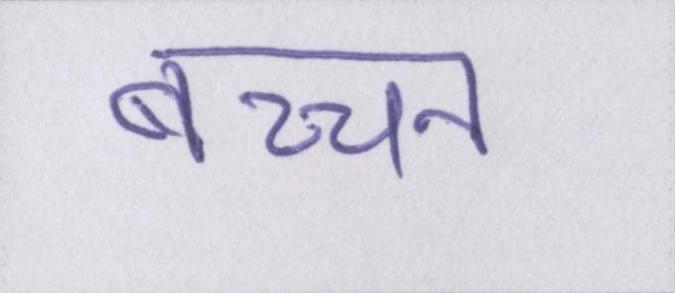 बच्चन